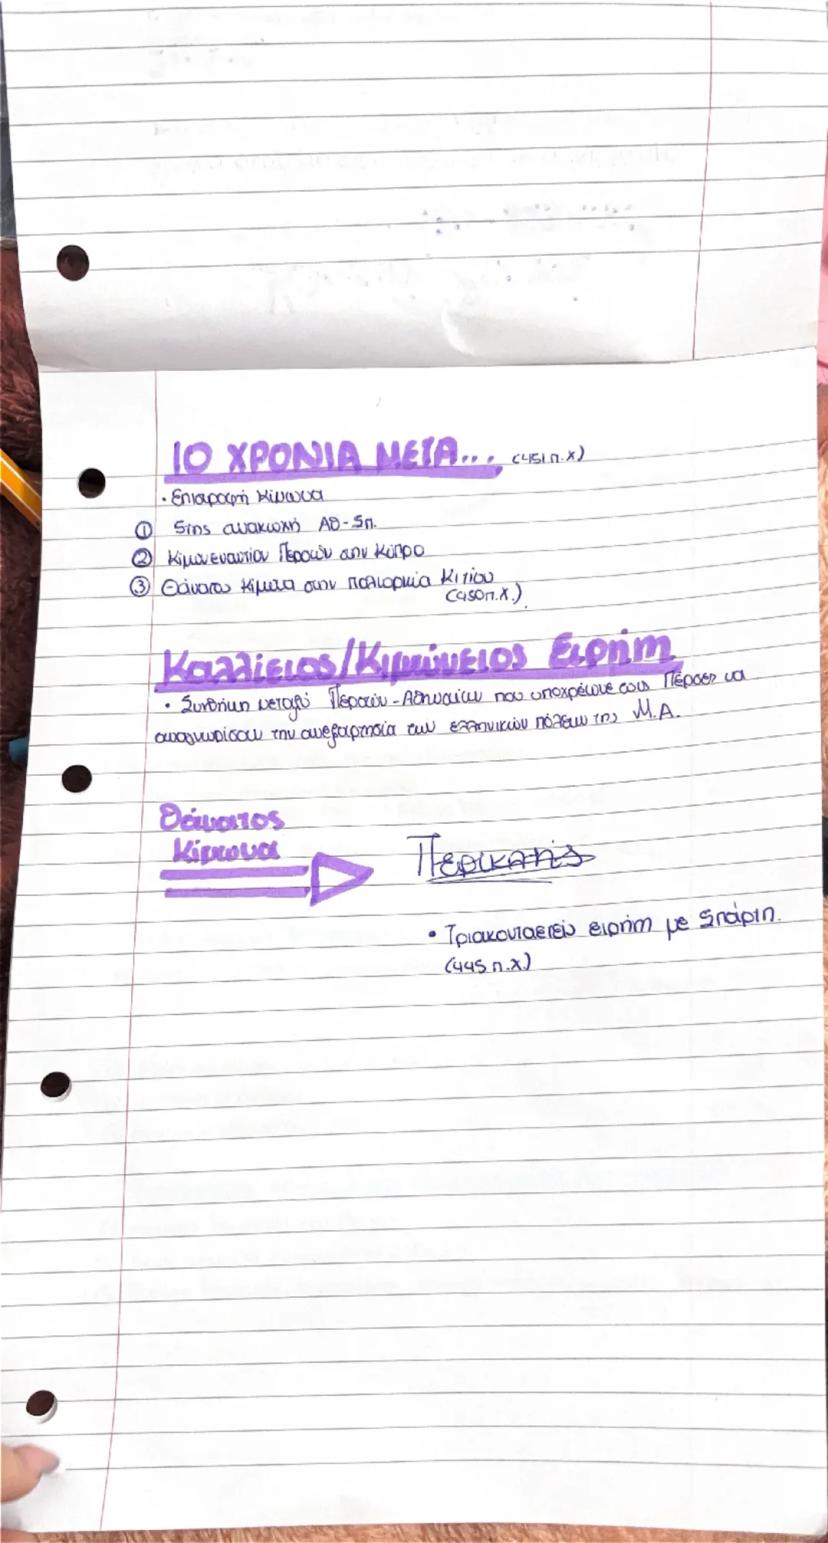 10 ΧΡΟΝΙΑ ΜΕΤΑ... (451 π.Χ)
· Επιστροφή Κίμωνα
① 5της ανακωχή ΑΘ-Σπ.
② Κίμων εναντίον Περσών στην Κύπρο
③ Θάνατος Κίμωνα στην πολιορκία Κιτίου
(450 π.Χ.)
Καλλίειος/Κιμώνειος Ειρήνη
· Συνθήκη μεταξύ Περσών-Αθηναίων που υποχρέωνε τους Πέρσες να
αναγνωρίσουν την ανεξαρτησία των ελληνικών πόλεων της Μ.Α.
Θάνατος
Κίμωνα
Περικλής
• Τριακονταετείς ειρήνη με Σπάρτη.
(445 π.Χ)